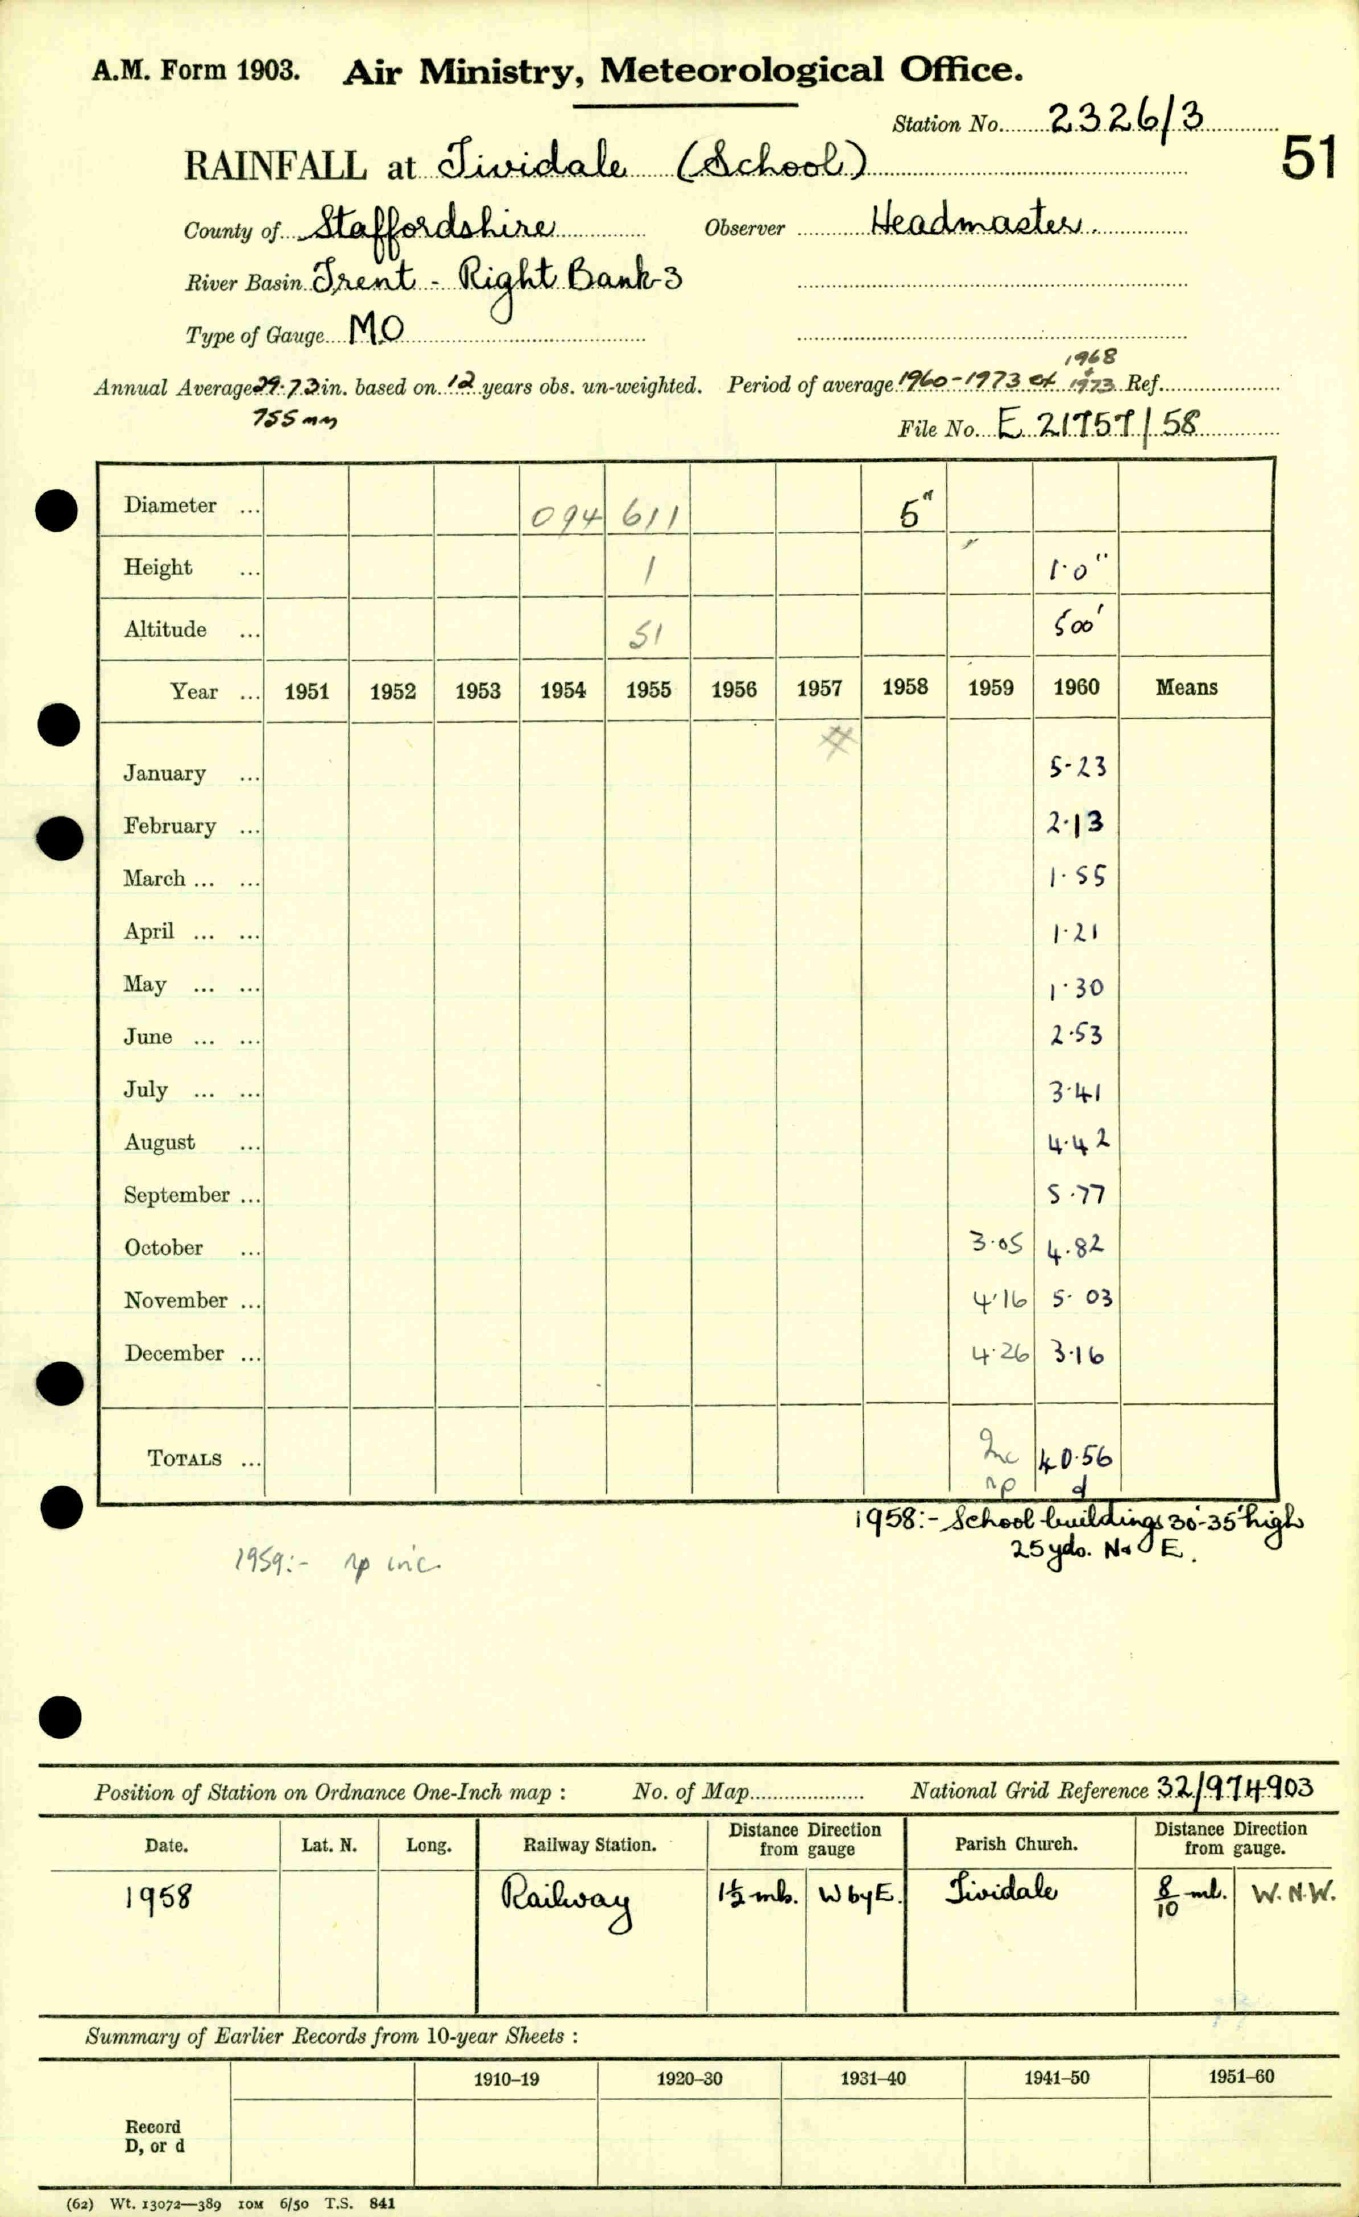 A.M. Form 1903. Air Ministry, Meteorological Office.
Station No. 2326/3
51
RAINFALL at Tividale (School)
County of Staffordshire Observer Headmaster.
River Basin Trent - Right Bank-3
Type of Gauge MO
1968
Annual Average 29.73 in. based on 12 years obs. un-weighted. Period of average 1960-1973 ex + 1973 Ref.
755 mm
File No. E 21757/58
Diameter ... 094 611 5"
Height ... 1 1.0"
Altitude ... 51 500'
Year ... 1951 1952 1953 1954 1955 1956 1957 1958 1959 1960 Means
#
January ... 5.23
February ... 2.13
March ... ... 1.55
April ... ... 1.21
May ... ... 1.30
June ... ... 2.53
July ... ... 3.41
August ... 4.42
September ... 5.77
October ... 3.05 4.82
November ... 4.16 5.03
December ... 4.26 3.16
TOTALS ... Inc 40.56
np d
1958:- School buildings 30'-35' high
25 yds. N + E.
1959:- np inc.
Position of Station on Ordnance One-Inch map : No. of Map National Grid Reference 32/974903
Date. Lat. N. Long. Railway Station. Distance from Direction gauge Parish Church. Distance from Direction gauge.
1958 Railway 1½ mls. W by E. Tividale 8/10 ml. W.N.W.
Summary of Earlier Records from 10-year Sheets :
1910–19 1920–30 1931–40 1941–50 1951–60
Record
D, or d
(62) Wt. 13072—389 10M 6/50 T.S. 841